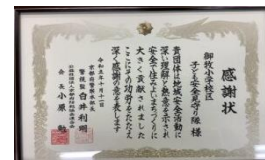 感謝状
御牧小学校区
子ども安全見守り隊 様
貴団体は地域安全活動に
深い理解と熱意を示され
安全で住みよいまちづくりに
大きく貢献されました
ここにその功労をたたえ
深く感謝の意を表します
令和五年十月十一日
京都府警察本部長
警視監 白井利明
会長 小原